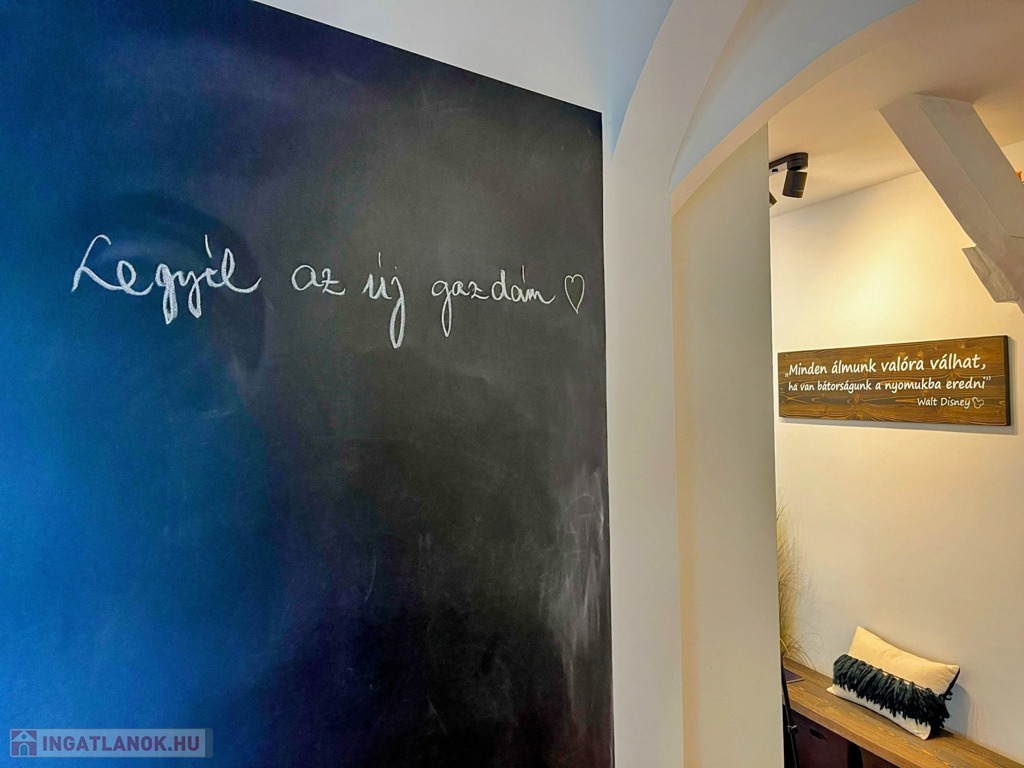 Legyél az új gazdám ♡
„Minden álmunk valóra válhat,
ha van bátorságunk a nyomukba eredni”
Walt Disney
INGATLANOK.HU